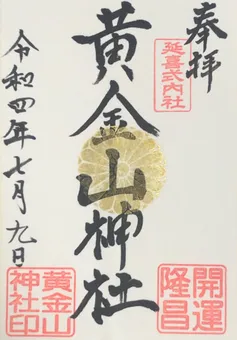 奉拝
延喜式内社
黄金山神社
令和四年七月九日
開運
隆昌
黄金山
神社印